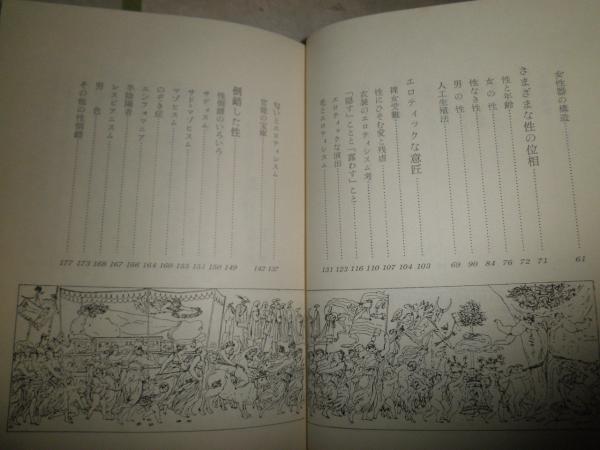 女性器の構造 61
さまざまな性の位相 71
性と年齢 72
女の性 76
性なき性 84
男の性 90
人工生殖法
エロティックな意匠 103
裸女受難 104
性にひそむ愛と残虐 107
衣裳のエロティシズム考 110
「隠す」ことと「露わす」こと 116
エロティックな演出 123
とエロティシズム 131
匂いとエロティシズム 137
官能の宝庫 142
倒錯した性 149
性倒錯のいろいろ 150
サディズム 151
サド=マゾヒズム 153
マゾヒズム 160
のぞき症 164
ニンフォマニア 166
半陰陽者 167
レスビアニズム 168
男色 173
その他の性倒錯 177